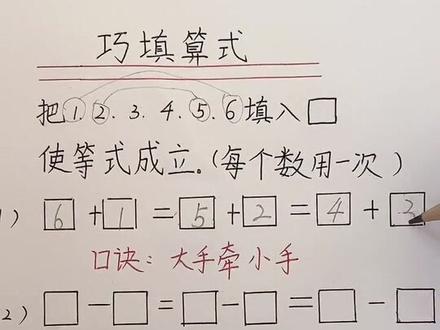 巧填算式
把1.2.3.4.5.6填入□
使等式成立.(每个数用一次)
1) 6+1=5+2=4+3
口诀:大手牵小手
2) □-□=□-□=□-□